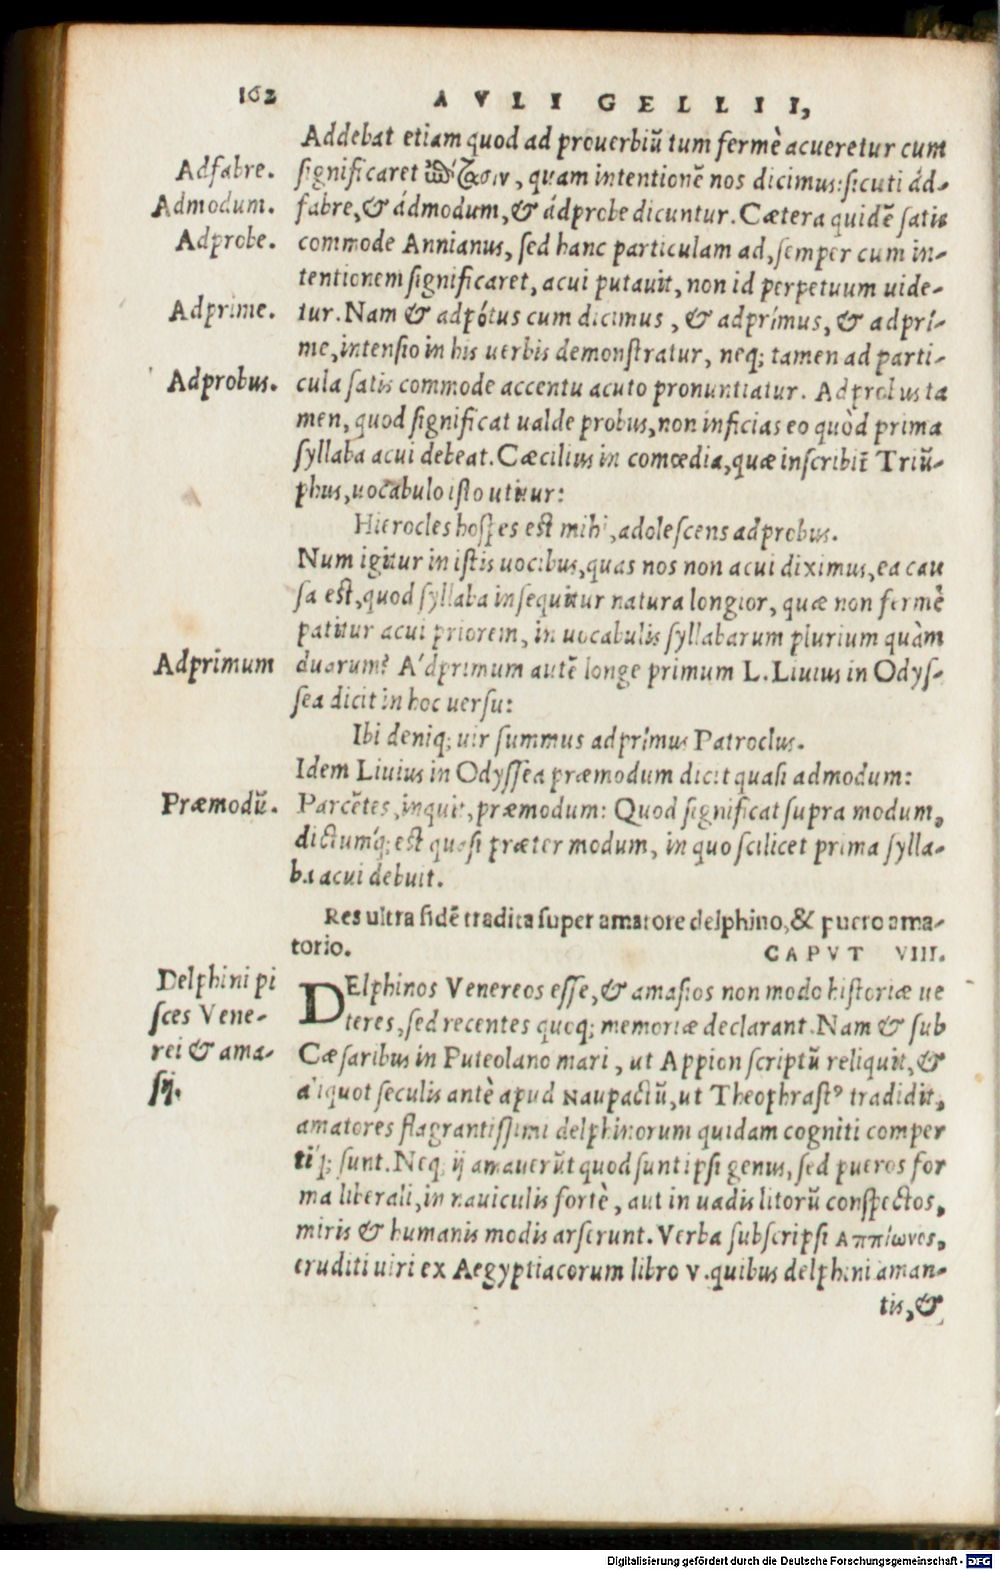 162
AVLI GELLII,
Addebat etiam quod ad prouerbiũ tum fermè acueretur cum
Adfabre.
significaret ἐπίτασιν, quam intentionẽ nos dicimus: sicuti ád-
Admodum.
fabre, & ádmodum, & ádprobe dicuntur. Cætera quidẽ satis
Adprobe.
commode Annianus, sed hanc particulam ad, semper cum in-
tentionem significaret, acui putauit, non id perpetuum uide-
Adprime.
tur. Nam & adpótus cum dicimus, & adprímus, & adprí-
me, intensio in his uerbis demonstratur, neq; tamen ad parti-
Adprobus.
cula satis commode accentu acuto pronuntiatur. Adprobus ta
men, quod significat ualde probus, non inficias eo quòd prima
syllaba acui debeat. Cæcilius in comœdia, quæ inscribit̃ Triũ-
phus, uocabulo isto utitur:
Hierocles hospes est mihi, adolescens adprobus.
Num igitur in istis uocibus, quas nos non acui diximus, ea cau
sa est, quod syllaba insequitur natura longior, quæ non fermè
patitur acui priorem, in uocabulis syllabarum plurium quàm
Adprimum
duarum? A'dprimum autẽ longe primum L. Liuius in Odys-
sea dicit in hoc uersu:
Ibi deniq; uir summus adprímus Patroclus.
Idem Liuius in Odyssea præmodum dicit quasi admodum:
Præmodũ.
Parcẽtes, inquit, præmodum: Quod significat supra modum,
dictumq́; est quasi præter modum, in quo scilicet prima sylla-
ba acui debuit.
Res ultra fidẽ tradita super amatore delphino, & puero ama-
torio. CAPVT VIII.
Delphini pi
sces Vene-
rei & ama-
sij.
DElphinos Venereos esse, & amasios non modo historiæ ue
teres, sed recentes quoq; memoriæ declarant. Nam & sub
Cæsaribus in Puteolano mari, ut Appion scriptũ reliquit, &
aliquot seculis antè apud Naupactũ, ut Theophrastꝰ tradidit,
amatores flagrantissimi delphinorum quidam cogniti comper
tiq́; sunt. Neq; ij amauerũt quod sunt ipsi genus, sed pueros for
ma liberali, in nauiculis fortè, aut in uadis litorũ conspectos,
miris & humanis modis arserunt. Verba subscripsi Αππίωνος,
eruditi uiri ex Aegyptiacorum libro v. quibus delphini aman-
tis, &
Digitalisierung gefördert durch die Deutsche Forschungsgemeinschaft - DFG